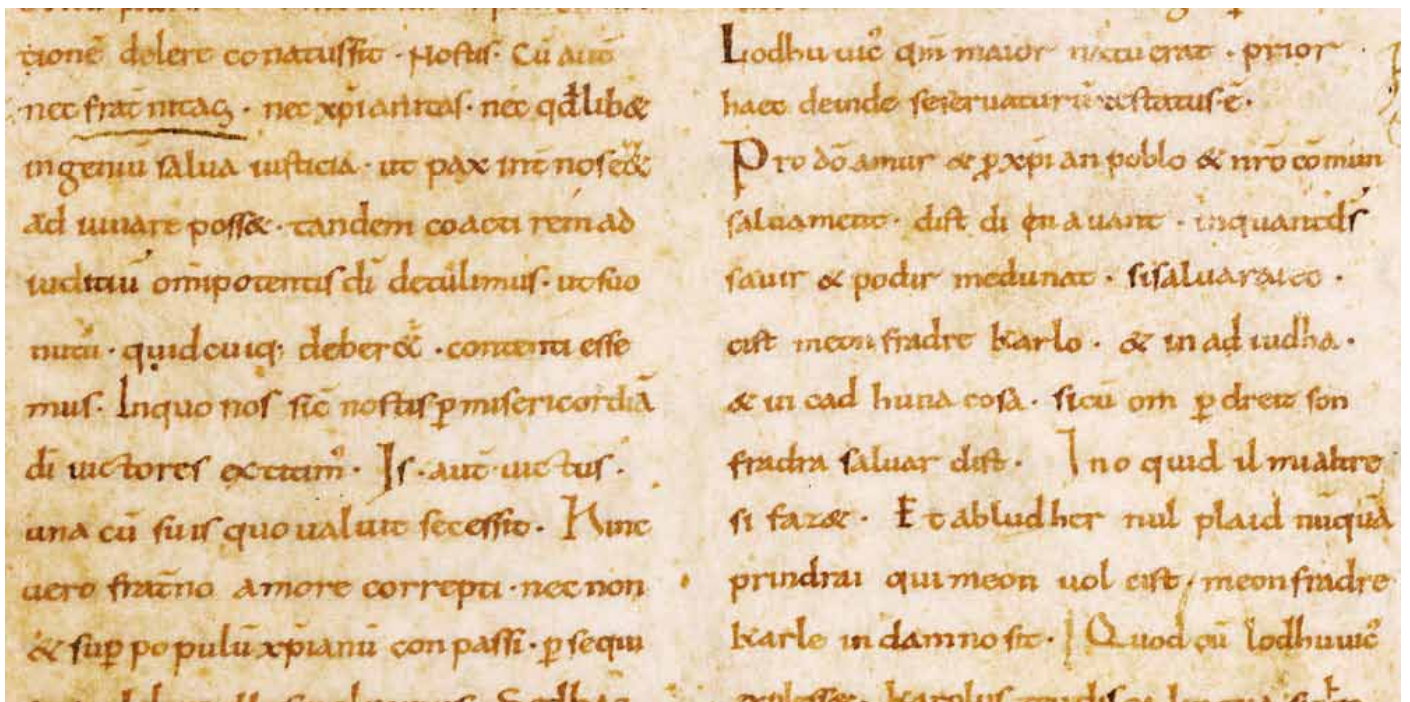 tionē delere conatus sit · Nostis· Cū autē
nec frat̄nitas · nec xp̄ianitas· nec qđlib&
ingeniū salua iusticia · ut pax int̄ nos e&
ad iuuare poss& · tandem coacti rem ad
iuditiū om̄ipotentis dī detulimus · ut suo
nutu · quid cuiq; deber& · contenti esse
mus · Inquo nos sic̄ nostis p̄ misericordiā
dī uictores extitim᾽ · Is · aut̄ uictus ·
una cū suis quo ualuit secessit · Hinc
uero frat̄no amore correpti · nec non
& sup̄ populū xp̄ianū conpassi · p̄sequi
Lodhuuic᾽ qm̄ maior natu erat · prior
haec deinde se seruaturū testatus· ē·
Pro dō amur & p̄ xp̄ian poblo & nr̄o cōmun
saluament · dist di en auant · inquantds̄
sauir & podir medunat · sisaluaraieo ·
cist meon fradre karlo · & in ad iudha ·
& in cad huna cosa · sicū om p̄ dreit son
fradra saluar dist · Ino quid il mialtre
si faz& · Et abludher nul plaid nūquā
prindrai qui meon uol cist · meonfradre
karle in damno sit · Quod cū lodhuuic᾽